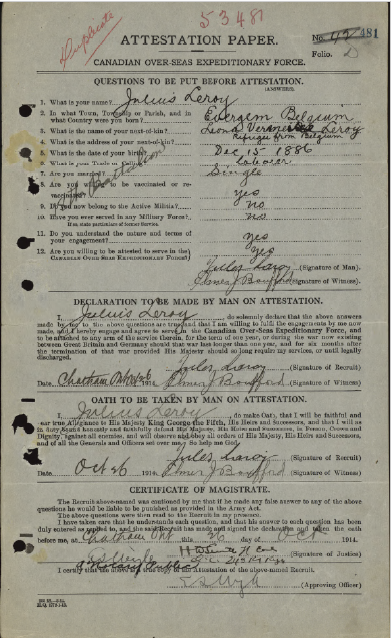 53481
Duplicate
ATTESTATION PAPER.
No. 481
Folio.
CANADIAN OVER-SEAS EXPEDITIONARY FORCE.
QUESTIONS TO BE PUT BEFORE ATTESTATION.
(ANSWERS)
1. What is your name? Julius Leroy
2. In what Town, Township or Parish, and in what Country were you born? Belgium
3. What is the name of your next-of-kin? Leroy
4. What is the address of your next-of-kin? Refugee from Belgium
5. What is the date of your birth? Dec 15 1886
6. What is your Trade or Calling? laborer
7. Are you married? Single
8. Are you willing to be vaccinated or re-vaccinated? yes
9. Do you now belong to the Active Militia? no
10. Have you ever served in any Military Force? no
If so, state particulars of former Service.
11. Do you understand the nature and terms of your engagement? yes
12. Are you willing to be attested to serve in the CANADIAN OVER-SEAS EXPEDITIONARY FORCE? yes
Jules Leroy (Signature of Man).
Elmer J. (Signature of Witness).
DECLARATION TO BE MADE BY MAN ON ATTESTATION.
I, Julius Leroy, do solemnly declare that the above answers
made by me to the above questions are true, and that I am willing to fulfil the engagements by me now
made, and I hereby engage and agree to serve in the Canadian Over-Seas Expeditionary Force, and
to be attached to any arm of the service therein, for the term of one year, or during the war now existing
between Great Britain and Germany should that war last longer than one year, and for six months after
the termination of that war provided His Majesty should so long require my services, or until legally
discharged.
Jules Leroy (Signature of Recruit)
Date Chatham Oct 26 1914. Elmer J. (Signature of Witness)
OATH TO BE TAKEN BY MAN ON ATTESTATION.
I, Julius Leroy, do make Oath, that I will be faithful and
bear true Allegiance to His Majesty King George the Fifth, His Heirs and Successors, and that I will as
in duty bound honestly and faithfully defend His Majesty, His Heirs and Successors, in Person, Crown and
Dignity, against all enemies, and will observe and obey all orders of His Majesty, His Heirs and Successors,
and of all the Generals and Officers set over me. So help me God.
Jules Leroy (Signature of Recruit)
Date Oct 26 1914. Elmer J. (Signature of Witness)
CERTIFICATE OF MAGISTRATE.
The Recruit above-named was cautioned by me that if he made any false answer to any of the above
questions he would be liable to be punished as provided in the Army Act.
The above questions were then read to the Recruit in my presence.
I have taken care that he understands each question, and that his answer to each question has been
duly entered as replied to, and the said Recruit has made and signed the declaration and taken the oath
before me, at Chatham Ont this 26 day of Oct 1914.
(Signature of Justice)
A Notary Public
I certify that the above is a true copy of the Attestation of the above-named Recruit.
(Approving Officer)